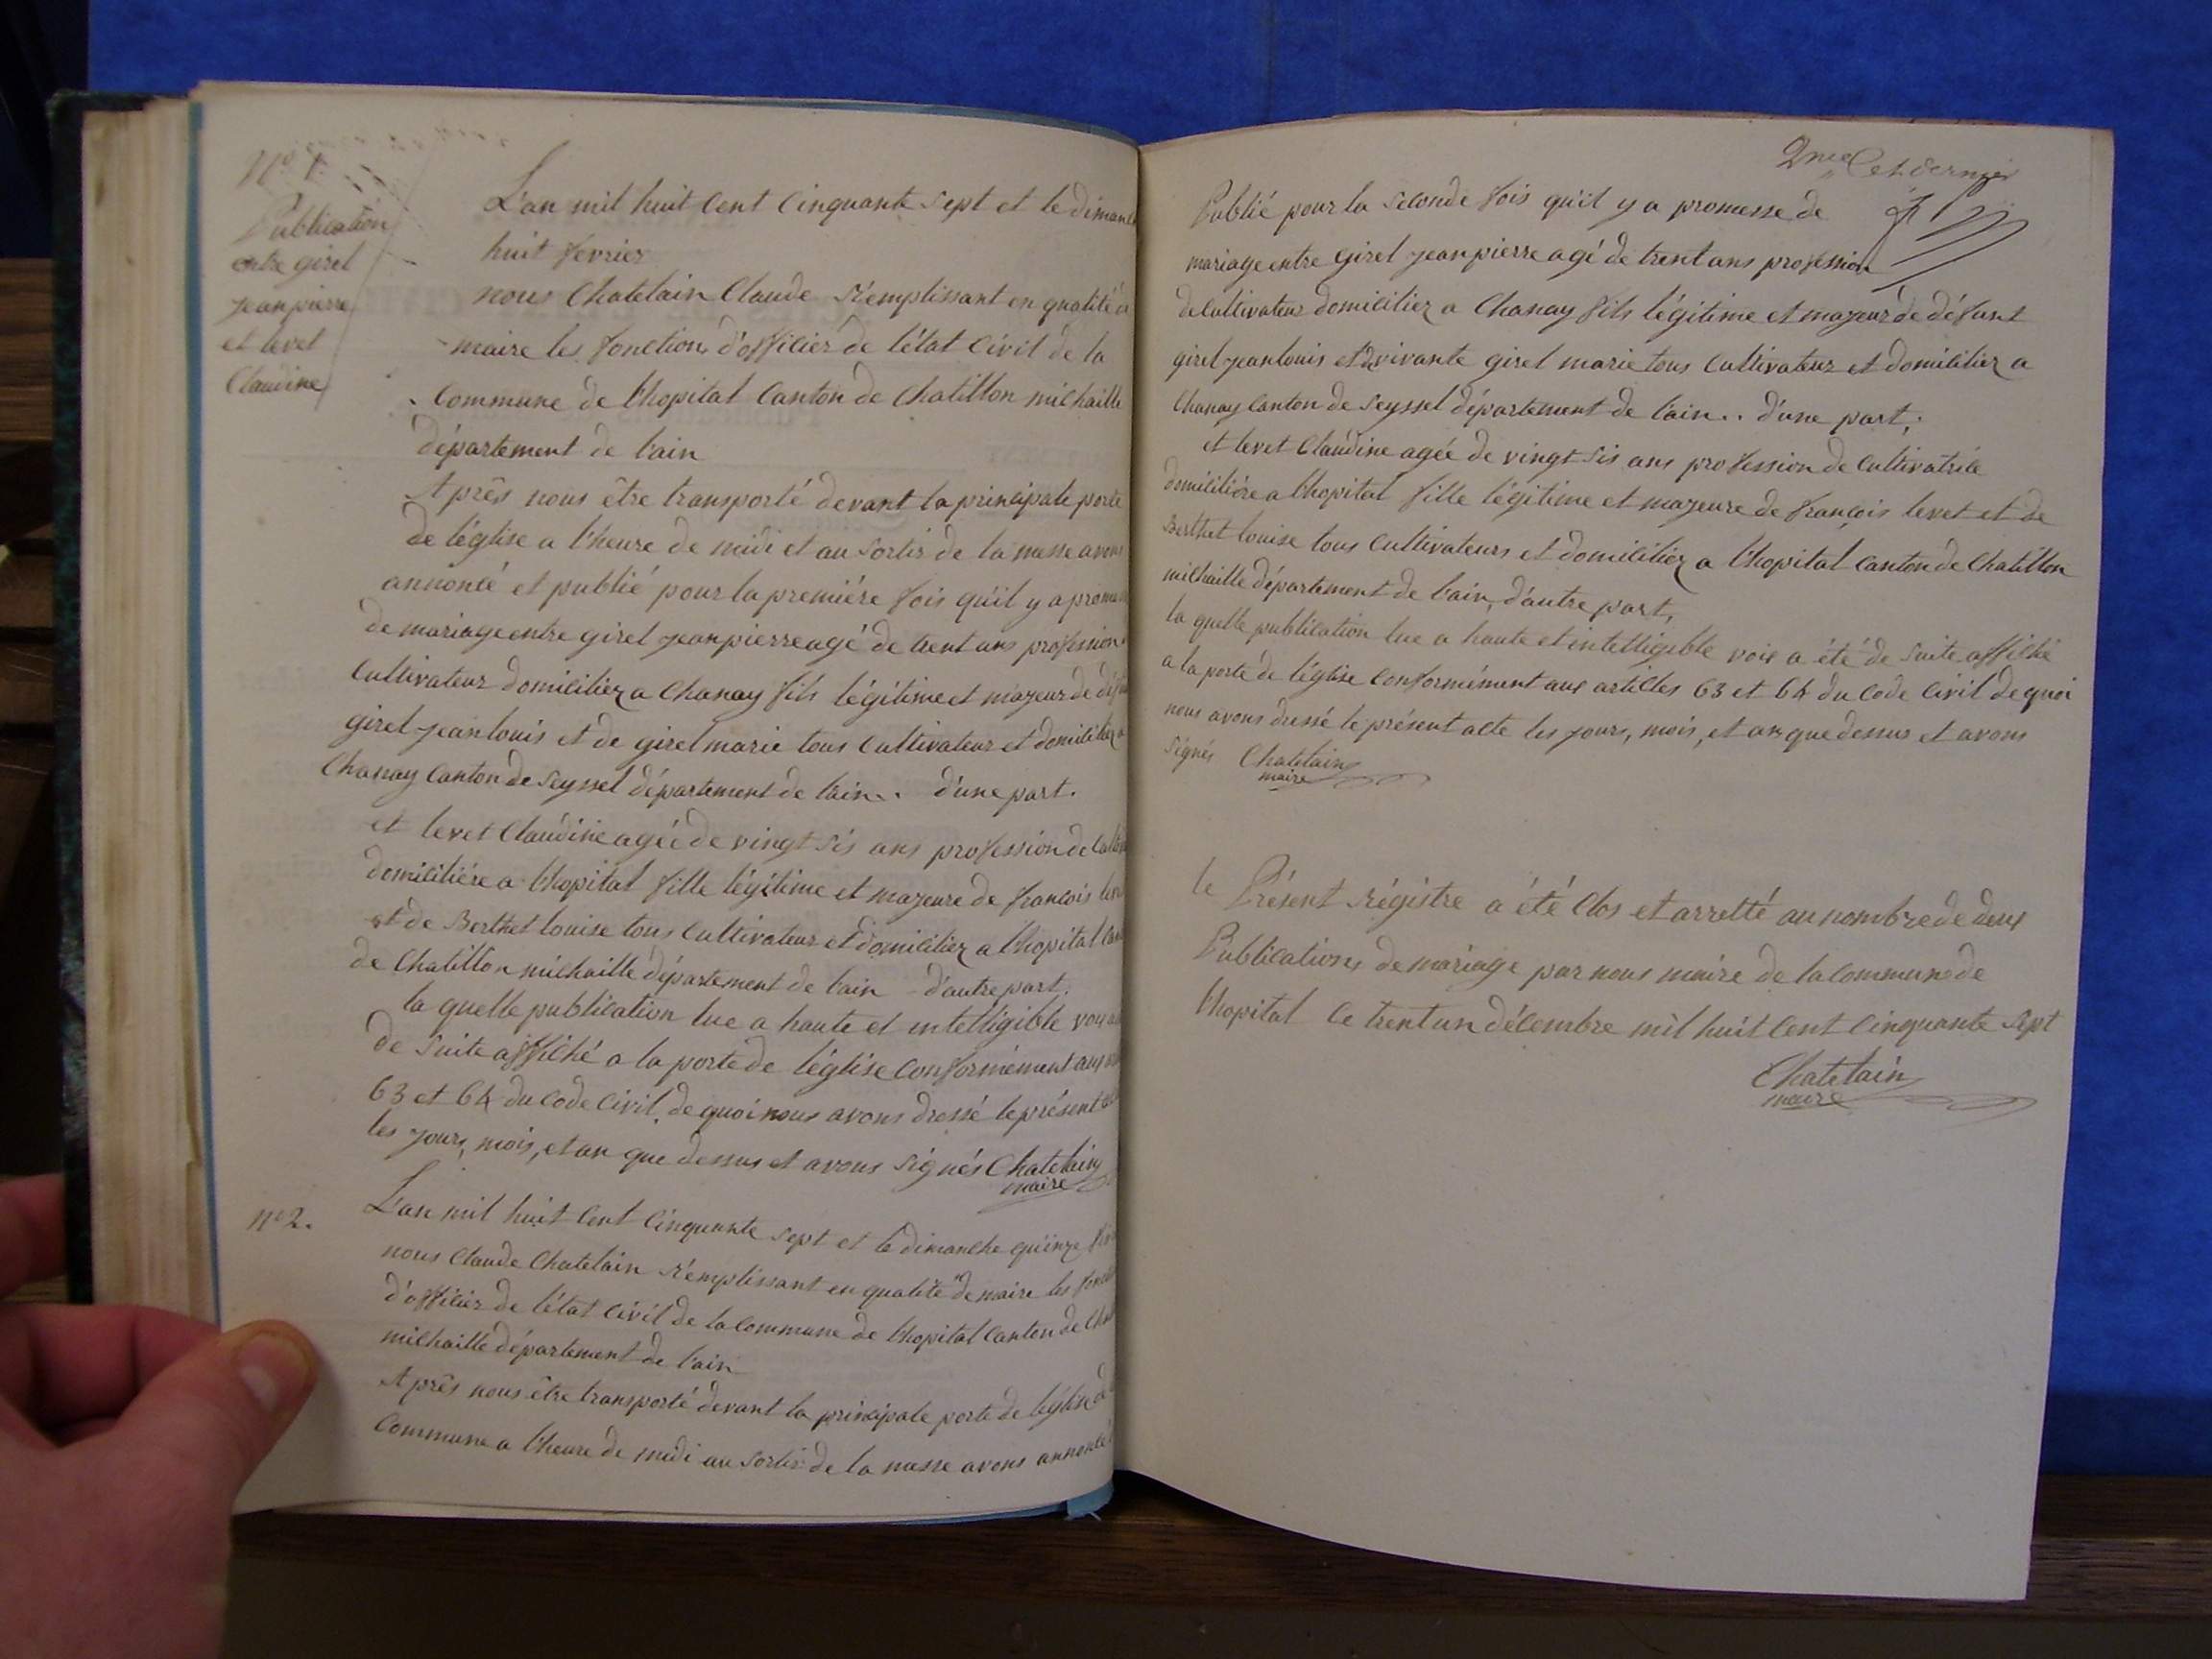 N° 1.
Publication
entre girel
jean pierre
et levet
Claudine
L'an mil huit Cent Cinquante Sept et le dimanc
huit fevrier
nous Chatelain Claude Remplissant en qualité de
maire les fonctions d'officier de l'état Civil de la
Commune de l'hopital Canton de Chatillon michaille
département de l'ain
Après nous être transporté devant la principale porte
de l'église a l'heure de midi et au Sortir de la messe avons
annoncé et publié pour la première fois qu'il y a prome
de mariage entre girel jean pierre agé de trent ans profession
Cultivateur domicilier a Chanay fils légitime et majeur de déf
girel jean louis et de girel marie tous Cultivateur et domicilier a
Chanay Canton de Seyssel département de l'ain. . d'une part.
et levet Claudine agée de vingt Sis ans profession de Culti
domicilière a l'hopital fille légitime et majeure de francois lev
et de Berthet louise tous Cultivateur et domicilier a l'hopital Can
de Chatillon michaille département de l'ain - d'autre part.
la quelle publication lue a haute et intelligible voix a
de Suite affiché a la porte de l'église Conformément aux
63 et 64 du Code Civil, de quoi nous avons dressé le présent
les jours, mois, et an que dessus et avons Signés Chatelain
maire
n° 2.
L'an mil huit Cent Cinquante Sept et le dimanche quinze fév
nous Claude Chatelain Remplissant en qualité de maire les fonct
d'officier de l'état Civil de la Commune de l'hopital Canton de Cha
michaille département de l'ain
Après nous être transporté devant la principale porte de l'église de
Commune a l'heure de midi au Sortir de la messe avons annoncé
2me et dernier
Publié pour la Seconde fois qu'il y a promesse de
mariage entre Girel jean pierre agé de trent ans profession
de Cultivateur domicilier a Chanay fils légitime et majeur de défunt
girel jean louis et de vivante girel marie tous Cultivateur et domicilier a
Chanay Canton de Seyssel département de l'ain. . d'une part;
et levet Claudine agée de vingt Sis ans profession de Cultivatrice
domicilière a l'hopital fille légitime et majeure de françois levet et de
Berthet louise tous Cultivateurs et domicilier a l'hopital Canton de Chatillon
michaille département de l'ain, d'autre part,
la quelle publication lue a haute et intelligible voix a été de Suite affiché
a la porte de l'église Conformément aux articles 63 et 64 du Code Civil de quoi
nous avons dressé le présent acte les jours, mois, et an que dessus et avons
Signés Chatelain
maire
le Présent régistre a été Clos et arretté au nombre de deux
Publications de mariage par nous maire de la Commune de
l'hopital le trent un décembre mil huit Cent Cinquante Sept
Chatelain
maire